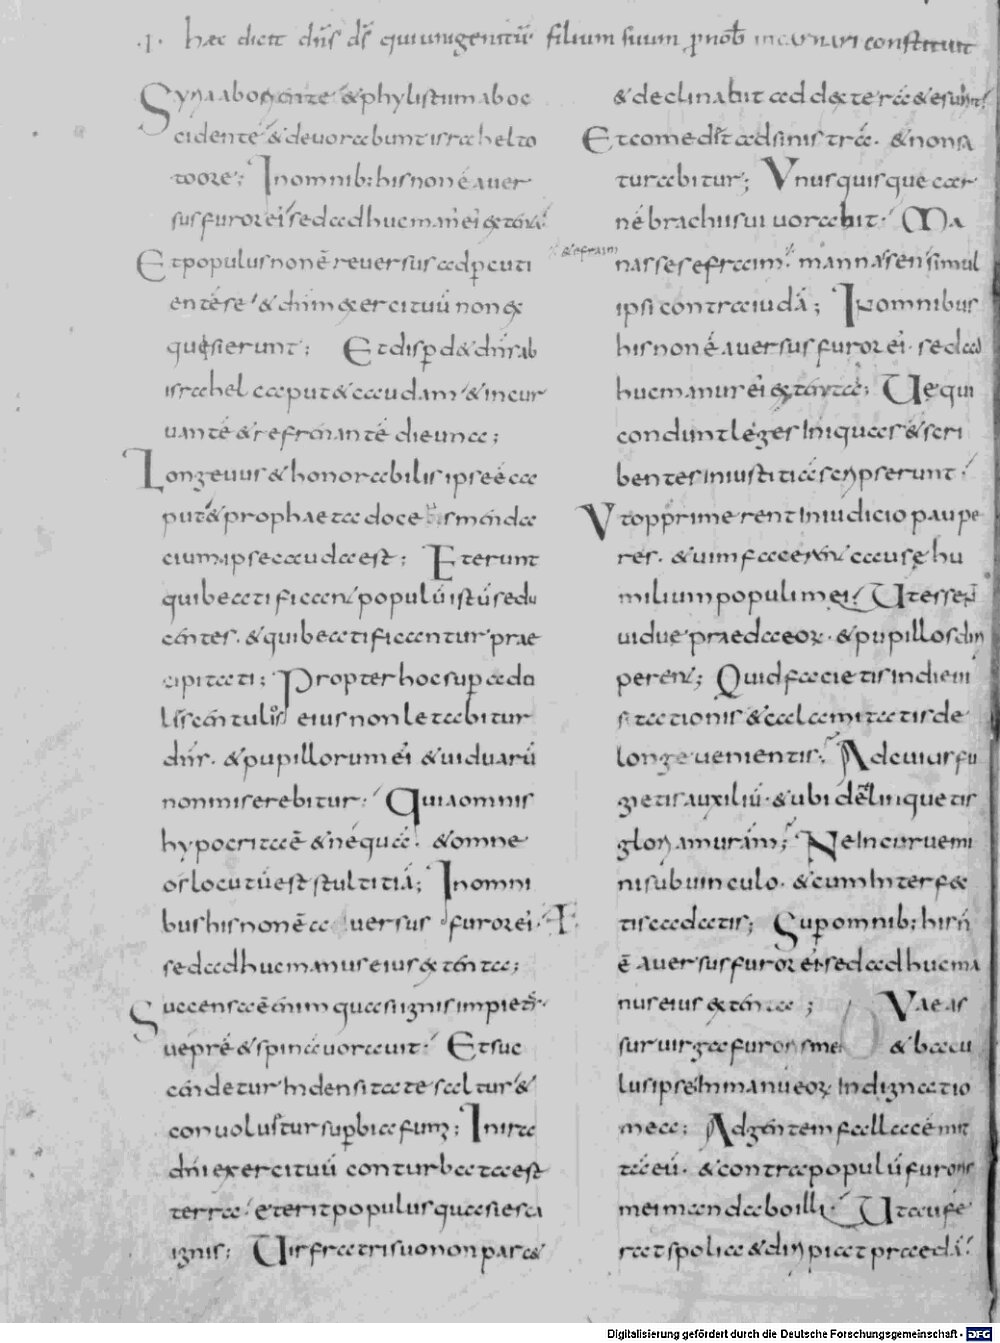 .I. haec dicit dn̄s ds̄ qui unigenitū filium suum p̱ nob̄ incarnari constituit
Syria ab oriente & phylistim ab oc
cidente & devorabunt israhel to
to ore; In omnib: his non ē aver
sus furor ei' sed adhuc man' ei' extenta
Et populus non ē reversus ad p̱cuti
entē se & dn̄m exercituū non ex
quęsierunt; Et disp̱d& dn̄s ab
israhel caput & caudam & incur
vantē & refrenantē die una;
Longevus & honorabilis ipse ē ca
put & propha&a docens menda
cium ipse cauda est; Et erunt
qui beatificant populū istū sedu
centes. & qui beatificantur prae
cipitati; Propter hoc sup̱ ado
liscentulis eius non letabitur
dn̄s. & pupillorum ei' & viduarū
non miserebitur; Quia omnis
hypocrita ē & nequa. & omne
os locutū est stultitiā; In omni
bus his non ē aversus furor ei'.
sed adhuc manus eius extenta;
Succensa ē enim quasi ignis impi&as
vepre & spina voravit; Et suc
cendetur in densitate saltur &
convolv&ur sup̱bia fumi; In ira
dn̄i exercituū conturbata est
terra & erit populus quasi esca
ignis; Vir fratri suo non parc&
& declinabit ad dextera & esuri&
Et comed& ad sinistrā. & non sa
turabitur; Unusquisque car
nē brachii sui vorabit. Ma
& efraim
nasses efraim. mannasen simul
ipsi contra iudā; In omnibus
his non ē aversus furor ei'. sed ad
huc manus ei' extenta; Ve qui
condunt leges iniquas & scri
bentes iniustitia scripserunt
Ut opprimerent in iudicio paupe
res. & vim facerent causę hu
milium populi mei. Ut essen̄
viduę praeda eoꝝ. & pupillos diri
perent; Quid faci&is in die vi
sitationis & calamitatis de
longe venientis; Ad cuius fu
gi&is auxiliū & ubi delinqu&is
gloriam vr̄am; Ne incurvemi
ni sub vinculo. & cum interfec
tis cadatis; Sup̱ omnib; his n̄
ē aversus furor ei' sed adhuc ma
nus eius extenta; Vae as
sur virga furoris mei & bacu
lus ipse in manu eoꝝ indignatio
mea; Ad gentem fallacē mit
tā eū. & contra populū furoris
mei mandabo illi. Ut aufe
rat spolia & diripiat praedā;
Digitalisierung gefördert durch die Deutsche Forschungsgemeinschaft - DFG